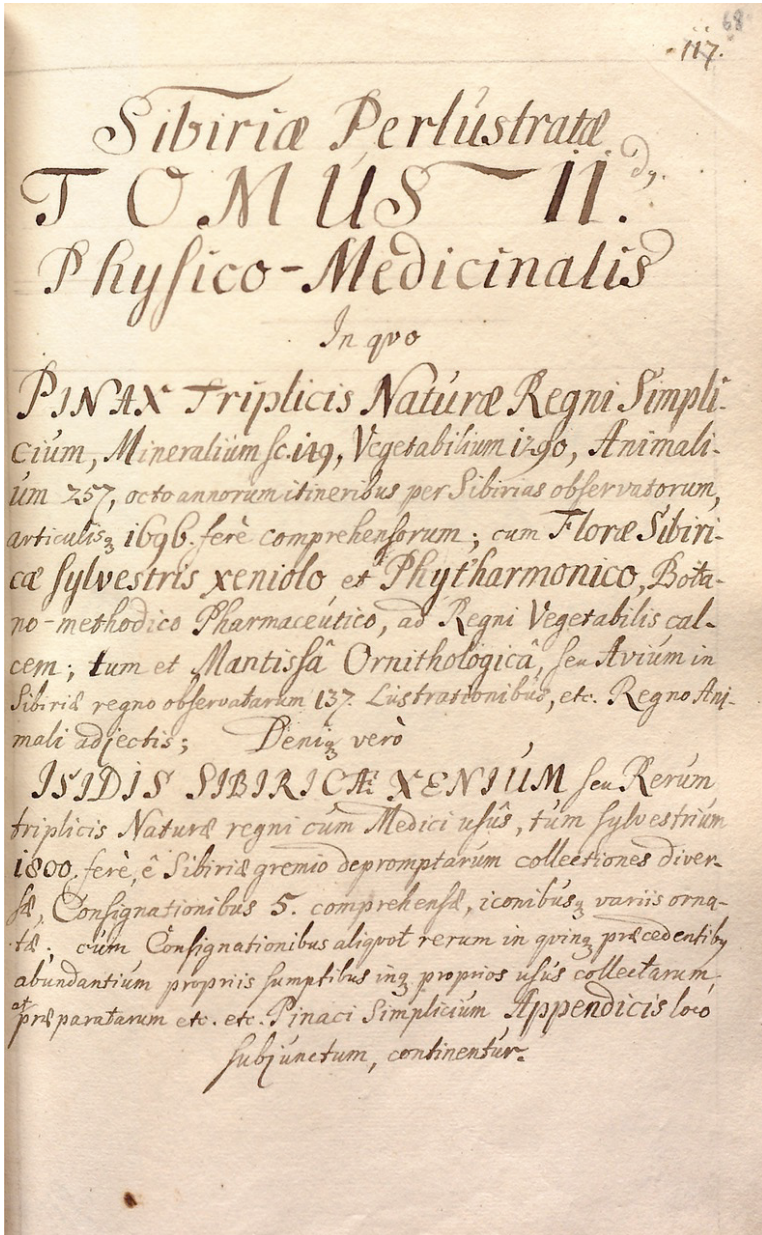 68
117.
Sibiriæ Perlustratæ
TOMUS II.dus
Physico-Medicinalis
In quo
PINAX Triplicis Naturæ Regni Simpli-
cium, Mineralium sc. 149, Vegetabilium 1290, Animali-
um 257, octo annorum itineribus per Sibirias observatorum,
articulisq; 1696. ferè comprehensorum; cum Floræ Sibiri-
cæ sylvestris xeniolo et Phytharmonico, Bota-
no-methodico Pharmaceutico, ad Regni Vegetabilis cal-
cem; tum et Mantissâ Ornithologicâ, seu Avium in
Sibiriæ regno observatarum 137. Lustrationibus, etc. Regno Ani-
mali adjectis; Deniq; verò
ISIDIS SIBIRICÆ XENIUM seu Rerum
triplicis Naturæ regni cum Medici usûs, tum sylvestrium
1800. ferè, ê Sibiriæ gremio depromptarum collectiones diver-
sæ, Consignationibus 5. comprehensæ, iconibusq; variis orna-
tæ; cum Consignationibus aliquot rerum in qvinq; præcedentibus
abundantium propriis sumptibus inq; proprios usus collectarum,
et præparatarum etc. etc. Pinaci Simplicium Appendicis loco
subjunctum, continentur.